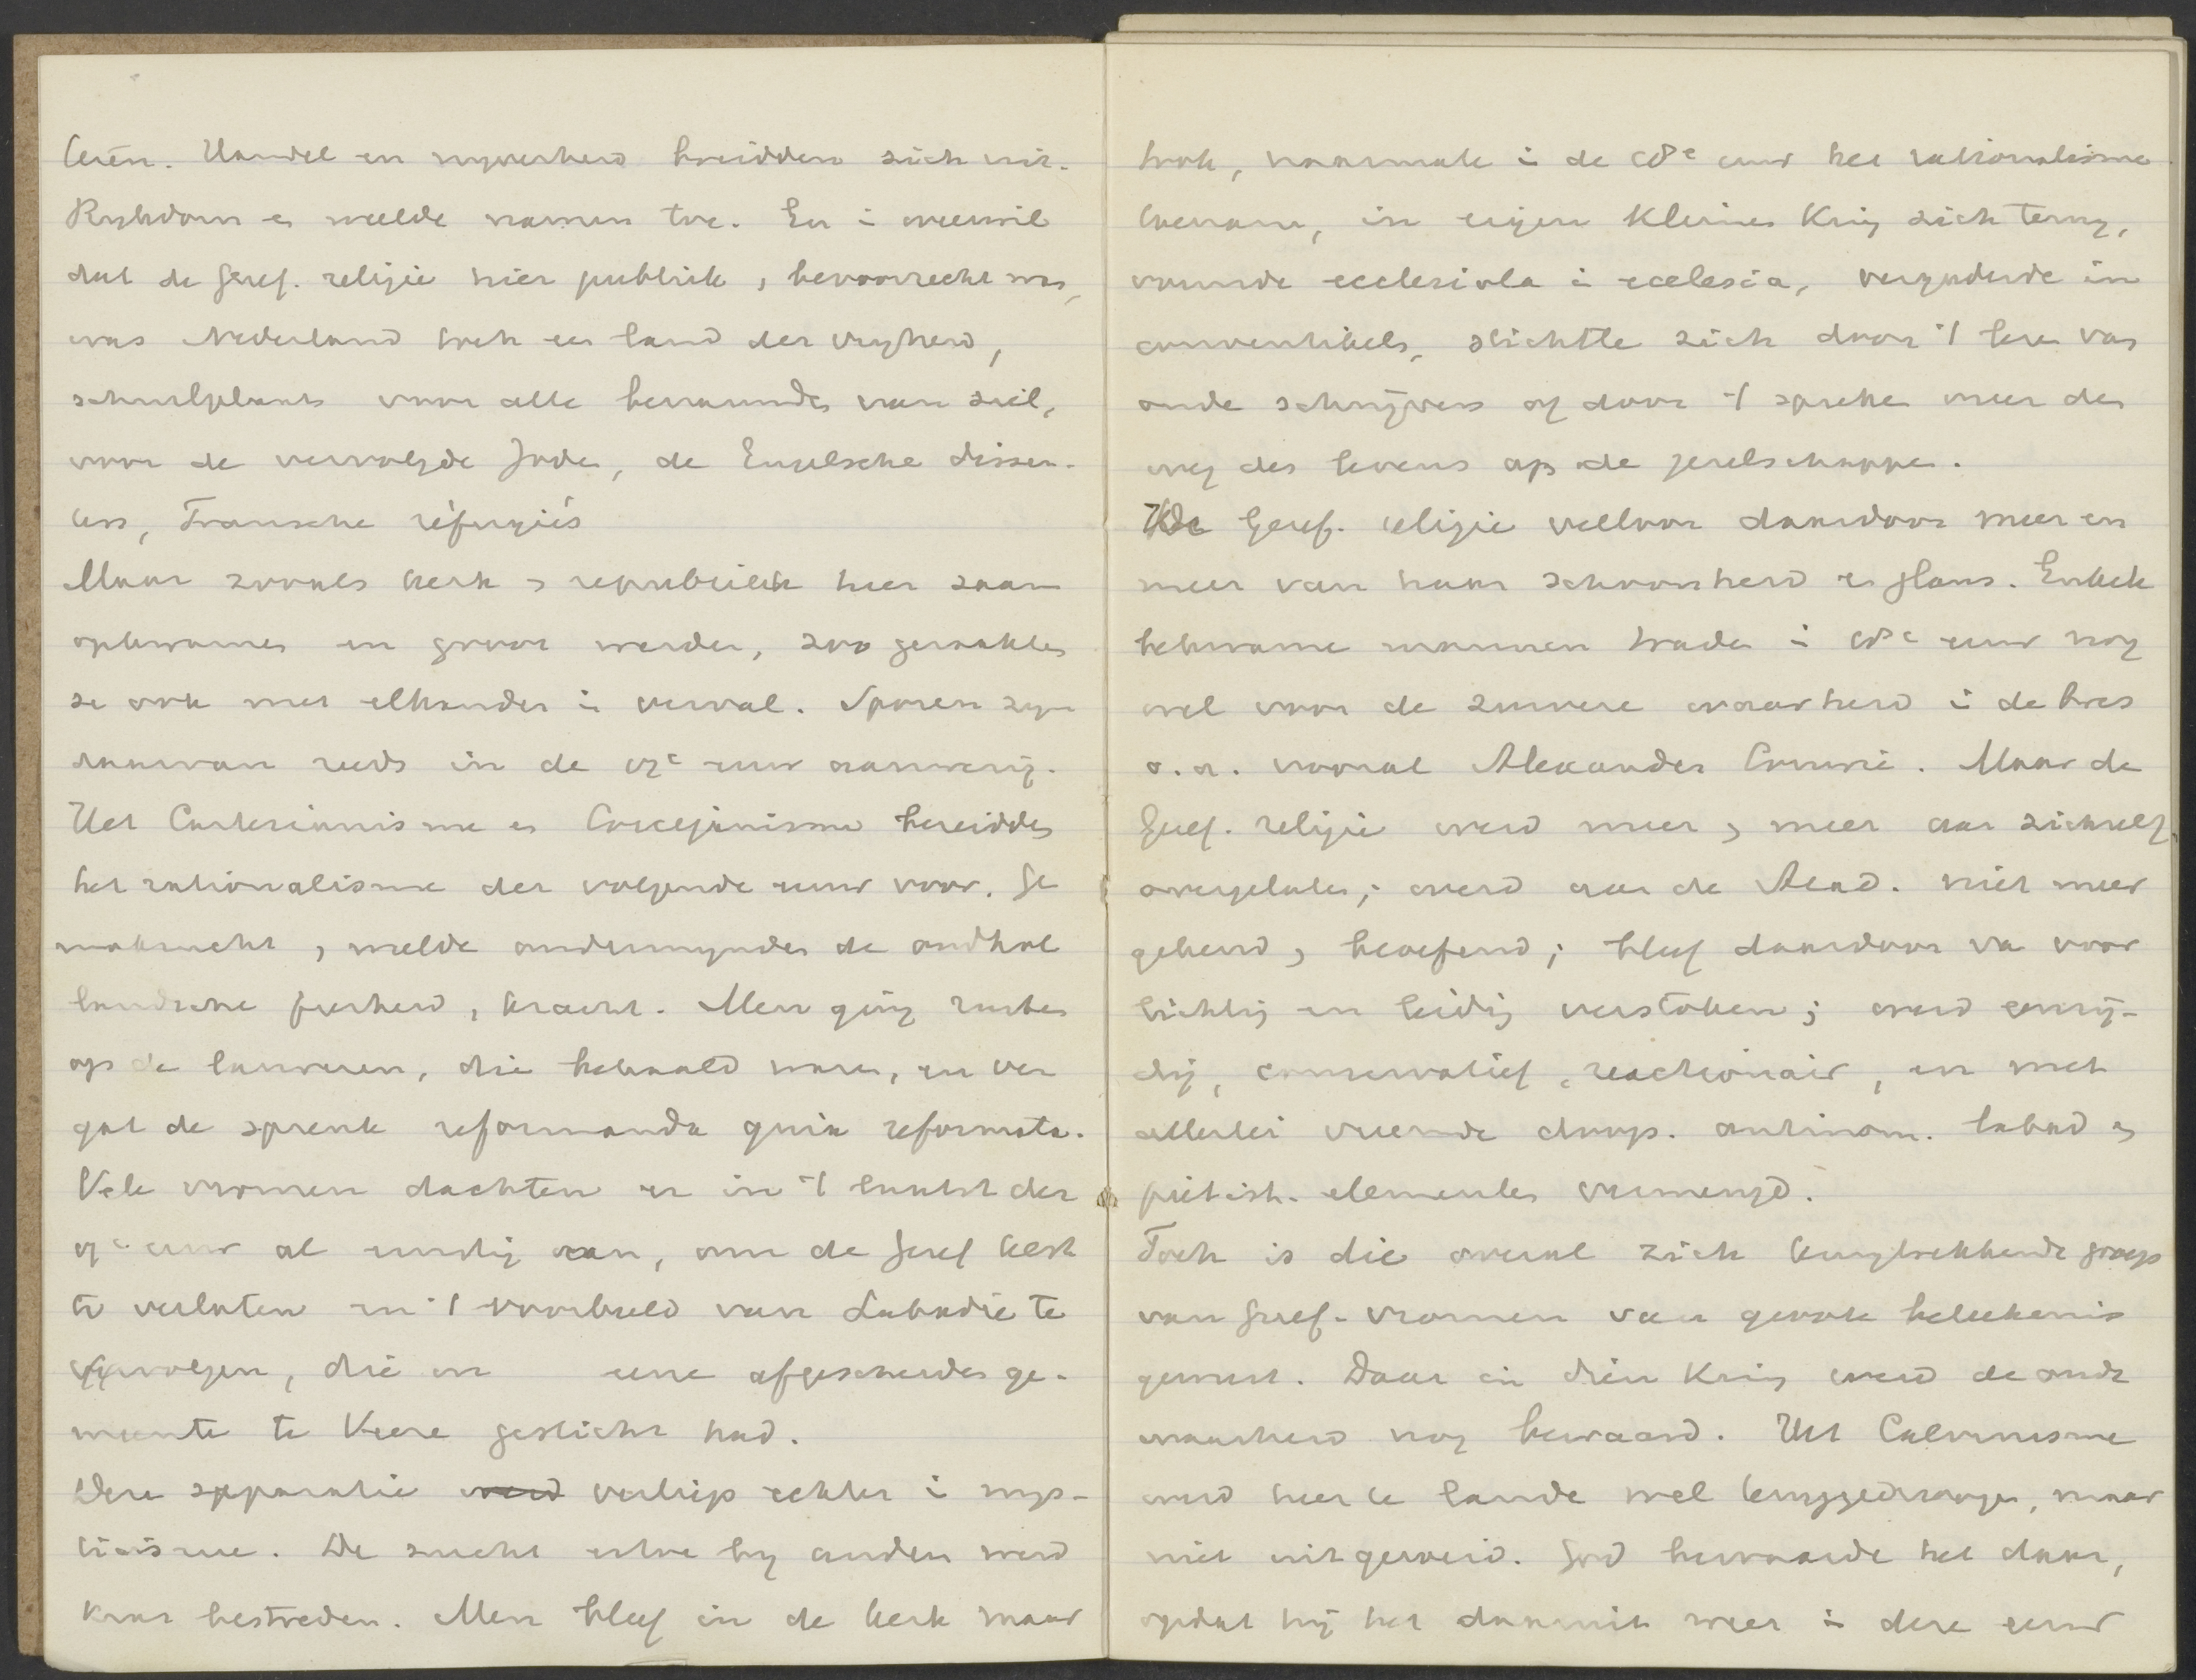 teren. Handel en nyverheid breidden zich uit.
Rykdom en weelde namen toe. En i weerwil
dat de Geref. religie hier publiek, bevoorrecht was,
was Nederland toch een land der vryheid,
schuilplaats voor alle benaauwden van ziel,
voor de vervolgde Joden, de Engelsche dissen-
ters, Fransche réfugiés
Maar zooals kerk en republiek hier saam
opkwamen en groot werden, zoo geraakten
ze ook met elkander in verval. Sporen zyn
daarvan reeds in de 17e eeuw aanwezig.
Het Cartesianisme en Coccejanisme bereidden
het rationalisme der volgende eeuw voor. Ge
makzucht, weelde ondermynden de oudhol
landsche fierheid, kracht. Men ging rusten
op de lauweren, die behaald waren, en ver
gat de spreuk reformanda quia reformata.
Vele vromen dachten er in 't laatst der
17e eeuw al ernstig aan, om de Geref kerk
te verlaten en 't voorbeeld van Labadie te
volgen, die in eene afgescheiden ge-
meente te Veere gesticht had.
Deze separatie werd verliep echter in mys-
ticisme. De zucht ertoe by anderen werd
krас bestreden. Men bleef in de kerk maar
trok, naarmate i de 18e eeuw het rationalisme
toenam, in eigen kleinen kring zich terug,
vormde ecclesiola i ecclesia, vergaderde in
conventikels, stichtte zich door 't lezen van
oude schrijvers of door 't spreken over den
weg des levens op de gezelschappen.
De Geref. religie verloor daardoor meer en
meer van haar schoonheid en glans. Enkele
bekwame mannen traden i 18e eeuw nog
wel voor de zuivere waarheid i de bres
o.a. vooral Alexander Comrie. Maar de
Geref. religie werd meer en meer aan zichzelf
overgelaten; werd aan de Acad. niet meer
gekend en beoefend; bleef daardoor van voor
lichting en leiding verstoken; werd eenzij-
dig, conservatief, reactionair, en met
allerlei vreemde doop. antinom. labad en
piëtist. elementen vermengd.
Toch is die overal zich terugtrekkende groep
van Geref. vromen van groote beteekenis
geweest. Daar in dien kring werd de oude
waarheid nog bewaard. Het Calvinisme
werd hier te lande wel teruggedrongen, maar
niet uitgeroeid. God bewaarde het daar,
opdat hij het daaruit weer i deze eeuw